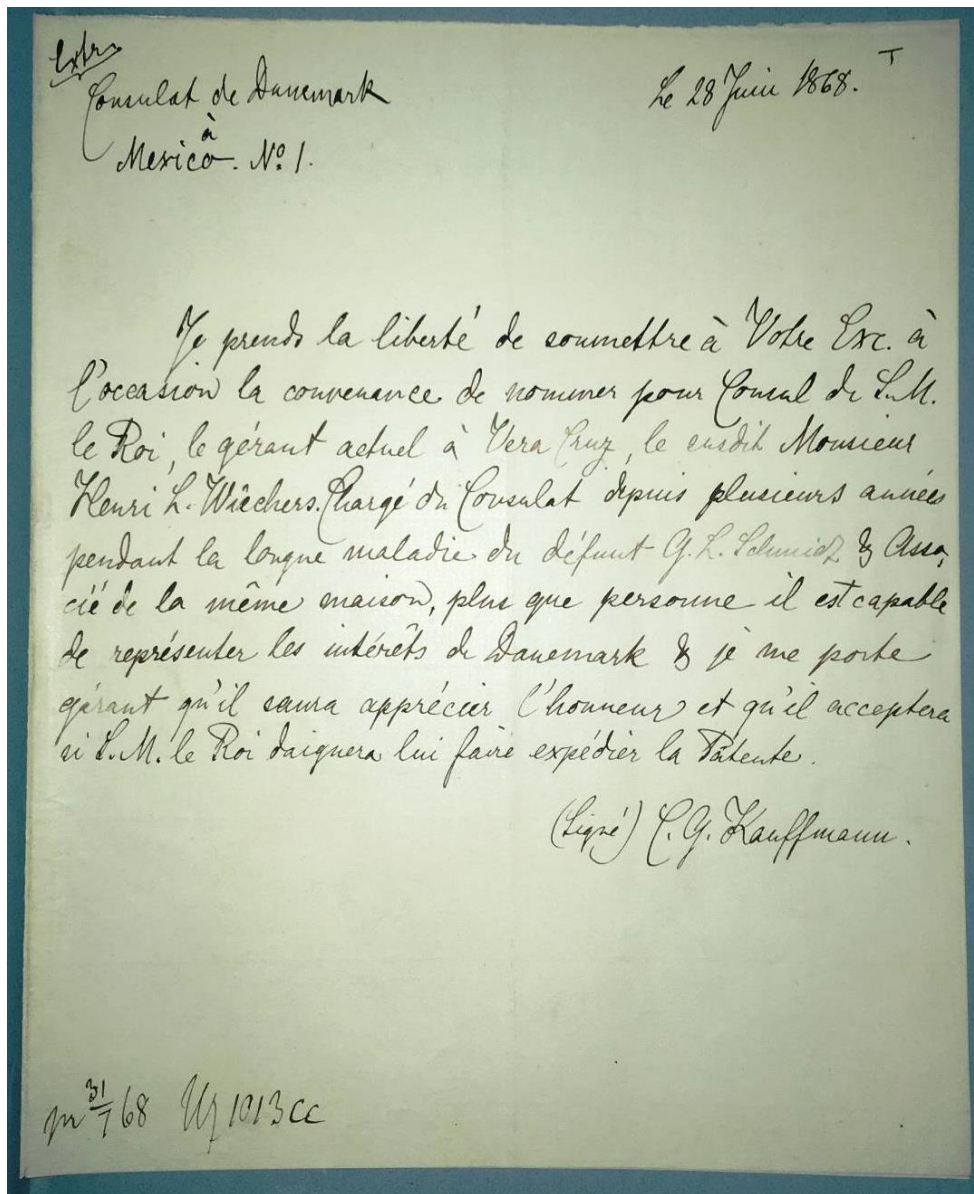 Extr.
Consulat de Danemark
à
Mexico. Nº 1.
Le 28 Juin 1868.
T
Je prends la liberté de soumettre à Votre Exc. à
l'occasion la convenance de nommer pour Consul de S.M.
le Roi, le gérant actuel à Vera Cruz, le susdit Monsieur
Henri L. Wiechers. Chargé du Consulat depuis plusieurs années
pendant la longue maladie du défunt G. L. Schmidt & Asso,
cié de la même maison, plus que personne il est capable
de représenter les intérêts de Danemark & je me porte
gérant qu'il saura apprécier l'honneur et qu'il acceptera
si S.M. le Roi daignera lui faire expédier la Patente.
(Signé) C. G. Kauffmann.
31/7 68 1013 cc